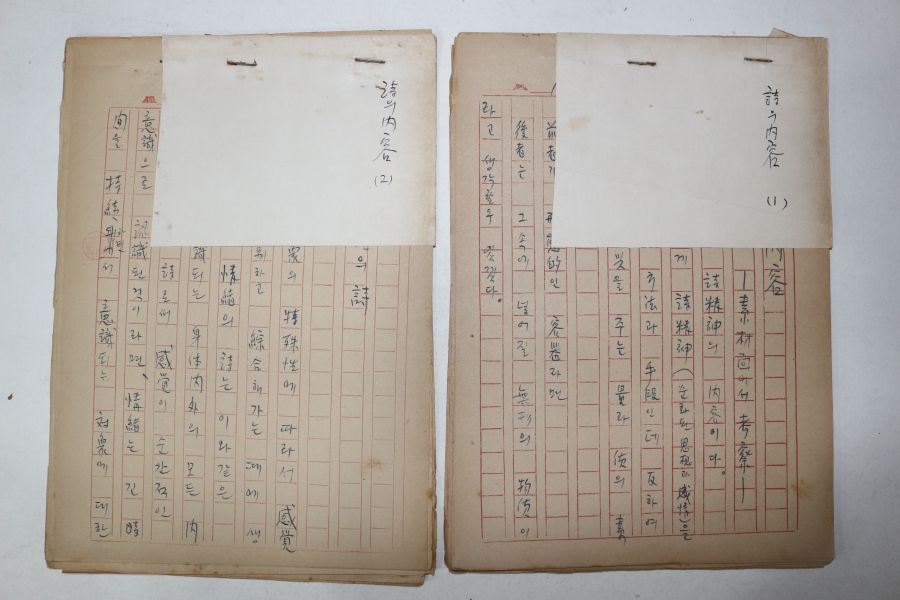 詩의 內容
(1)
內容
—素材面에서 考察—
詩精神의 內容이다.
게 詩精神(순화된 思想과 感情)을
기法과 手段인데 反하여
것을 주는 量과 質의 素
前者가 形態的인 容器라면
後者는 그 속에 넣어질 無形의 物質이
라고 생각할 수 있겠다.
詩의 內容
(2)
의 詩
象의 特殊性에 따라서 感覺
위하고 綜合해가는 데에 생
情緖의 詩는 이와 같은
識되는 身体內外의 모든 內
詩로써 感覺이 순간적인
意識으로 認識된 것이라면, 情緖는 긴 時
間을 持続하면서 意識되는 対象에 대한